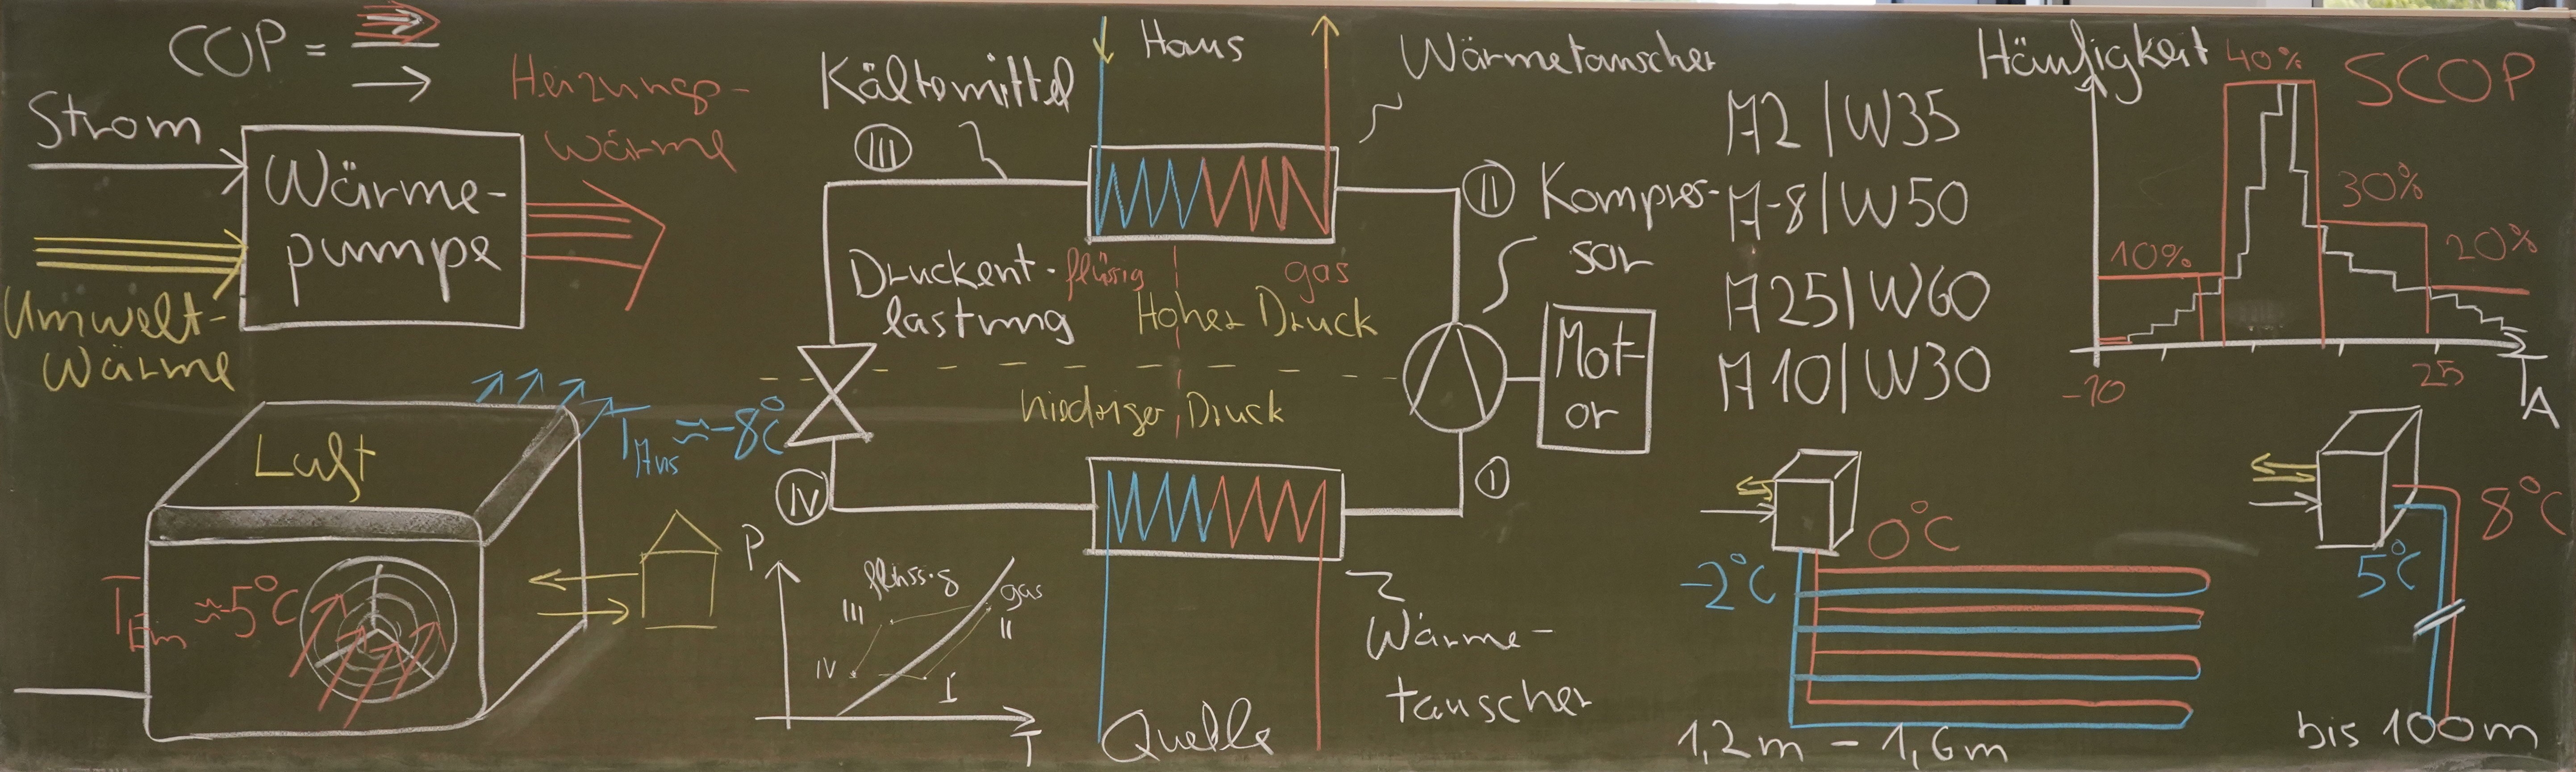 COP =
Strom
Umwelt-
Wärme
Wärme-
pumpe
Heizungs-
wärme
Luft
T Aus ≈ -8°C
T Ein ≈ -5°C
Kältemittel
III
Haus
Wärmetauscher
II
Kompres-
sor
Mot-
or
Druckent-
lastung
flüssig
gas
Hoher Druck
niedriger Druck
IV
I
P
flüssig
gas
III
II
IV
I
T
Quelle
Wärme-
tauscher
A2 | W35
A-8 | W50
A25 | W60
A10 | W30
Häufigkeit
SCOP
40%
30%
10%
20%
-10
25
T A
0°C
-2°C
1,2m - 1,6m
8°C
5°C
bis 100m